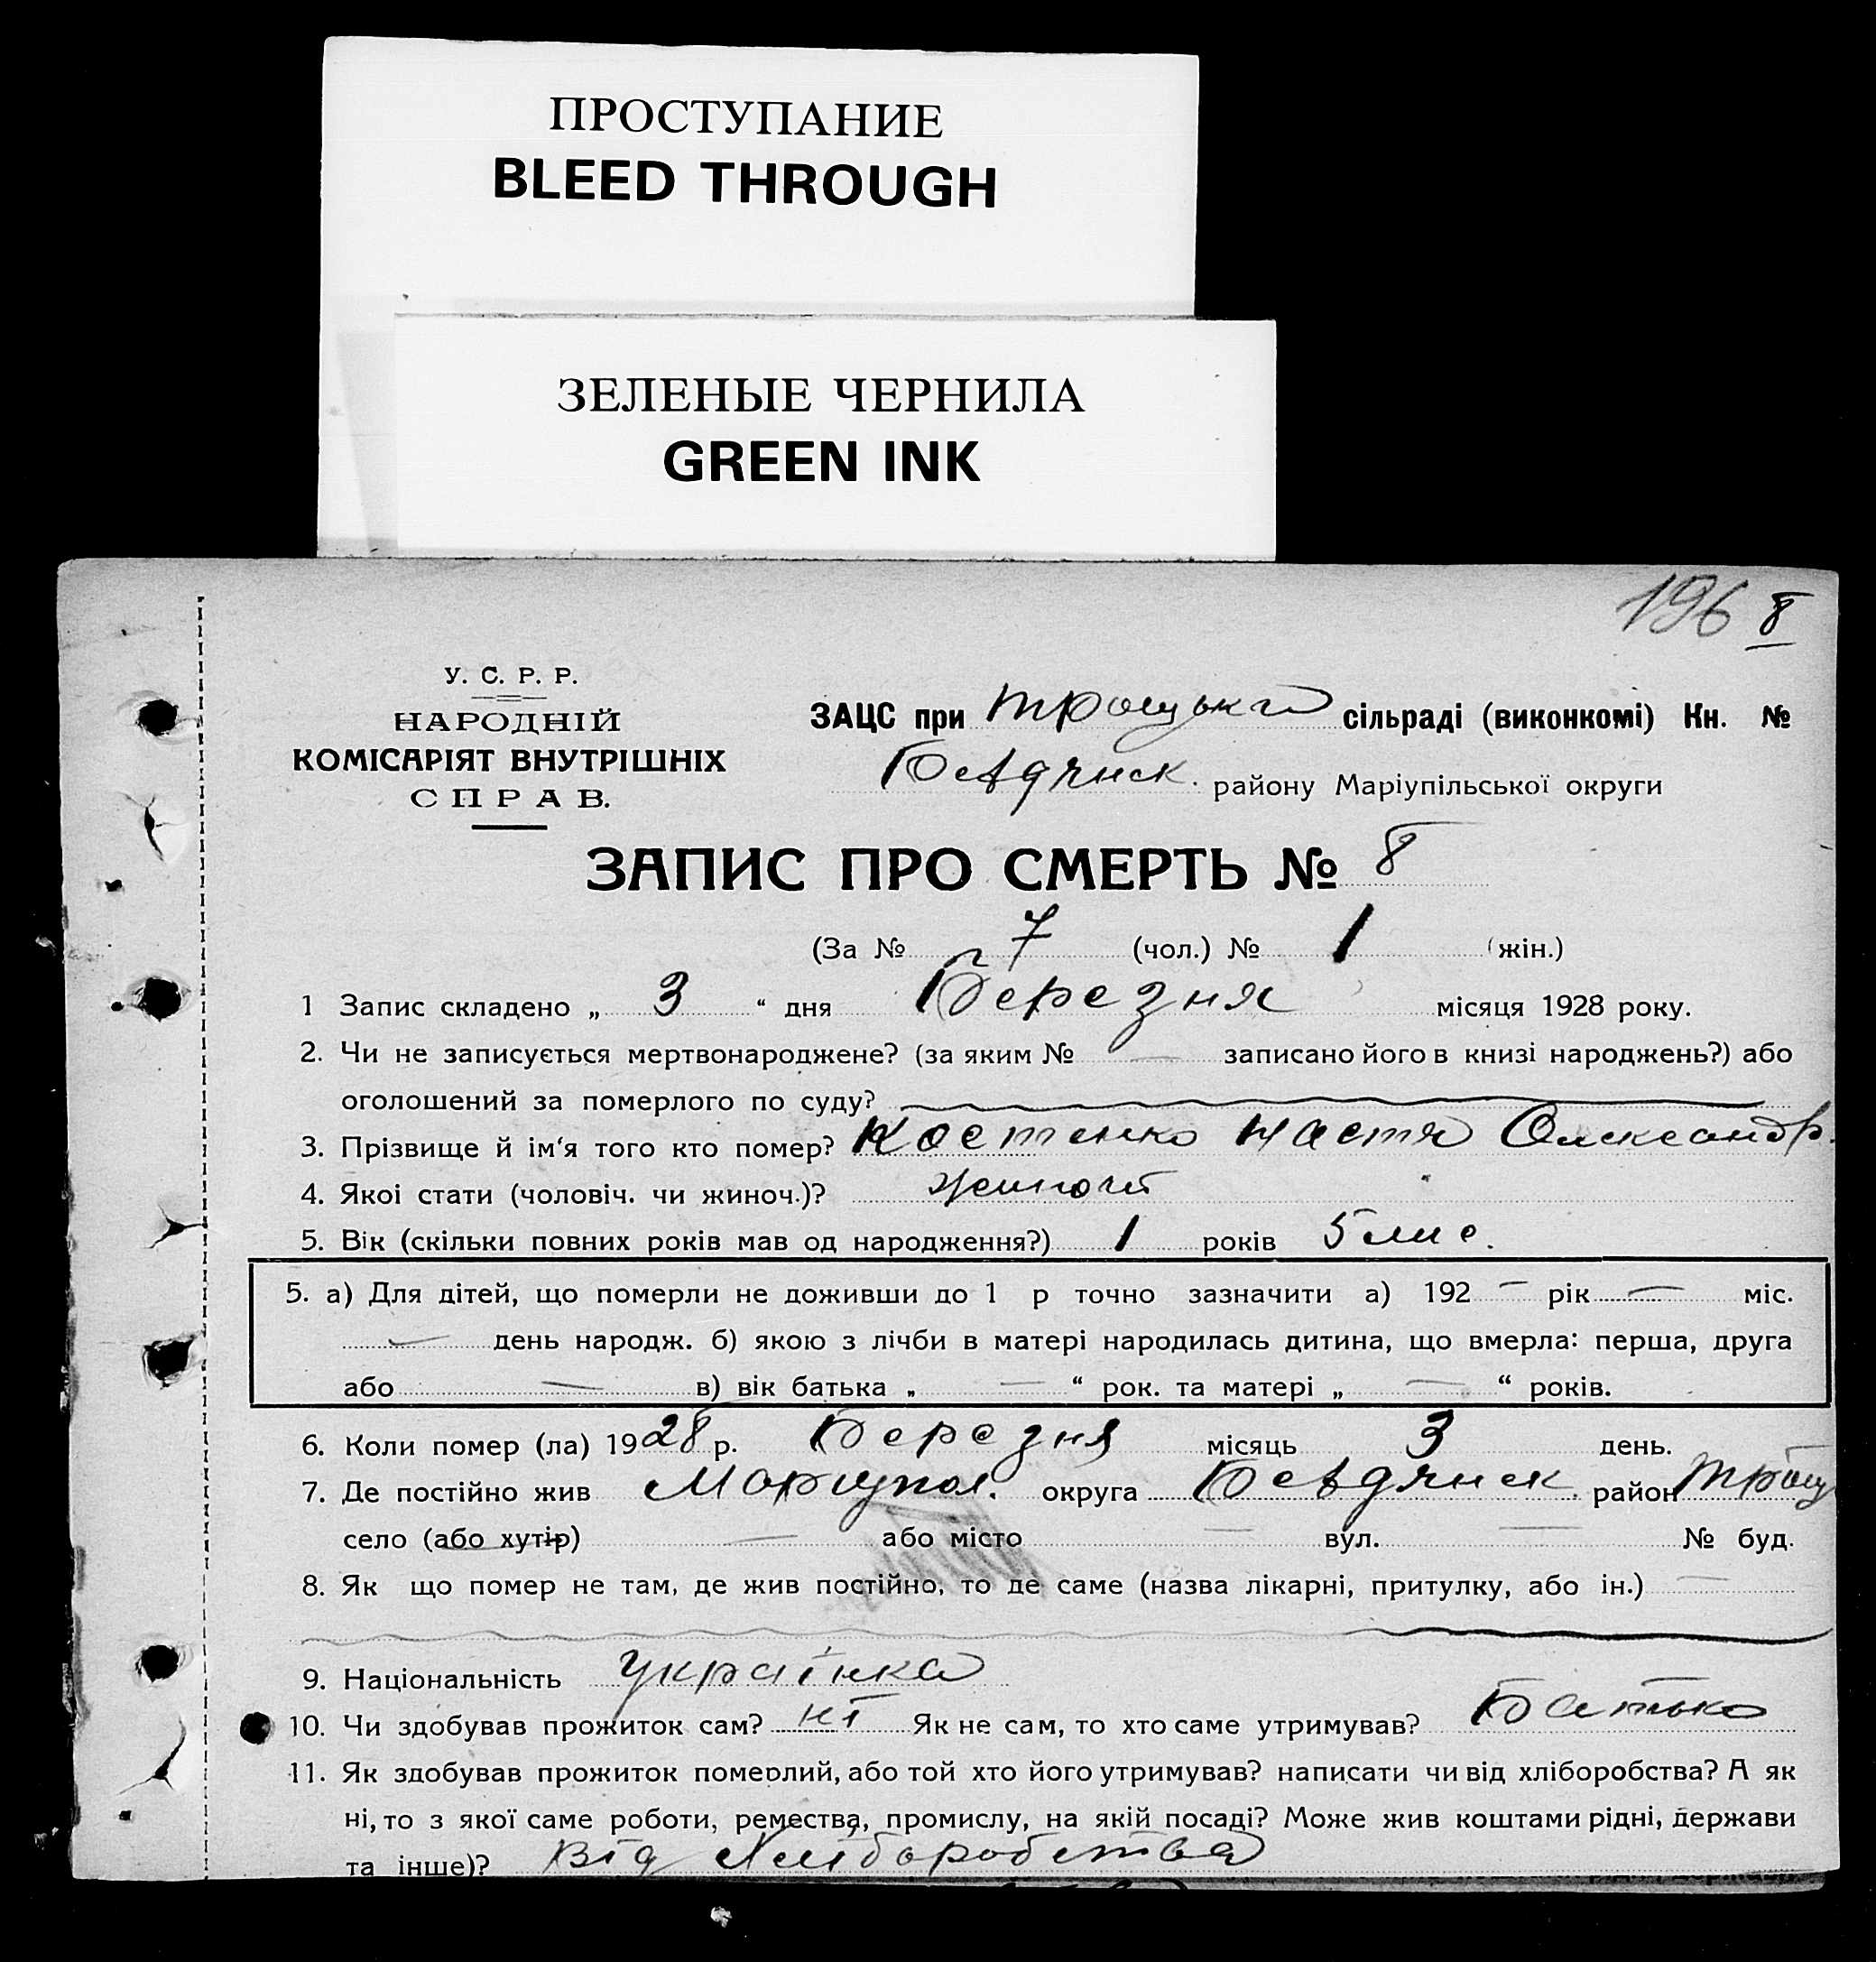 ПРОСТУПАНИЕ
BLEED THROUGH
ЗЕЛЕНЫЕ ЧЕРНИЛА
GREEN INK
196 8
У. С. Р. Р.
НАРОДНІЙ
КОМІСАРІЯТ ВНУТРІШНІХ
СПРАВ.
ЗАЦС при Троцькій сільраді (виконкомі) Кн. №
району Маріупільської округи
ЗАПИС ПРО СМЕРТЬ № 8
(За № 7 (чол.) № 1 (жін.)
1 Запис складено „ 3 “ дня Березня місяця 1928 року.
2. Чи не записується мертвонароджене? (за яким № — записано його в книзі народжень?) або
оголошений за померлого по суду?
3. Прізвище й ім'я того кто помер? Костенко Настя Олександр.
4. Якої стати (чоловіч. чи жиноч.)? Жиночої
5. Вік (скільки повних років мав од народження?) 1 років 5 мис.
5. а) Для дітей, що померли не доживши до 1 р точно зазначити а) 192 — рік — міс.
— день народж. б) якою з лічби в матері народилась дитина, що вмерла: перша, друга
або — в) вік батька „ — “ рок. та матері „ — “ років.
6. Коли помер (ла) 1928 р. Березня місяць 3 день.
7. Де постійно жив Маріупол. округа район Троц
село (або хутір) — або місто — вул. — № буд.
8. Як що помер не там, де жив постійно, то де саме (назва лікарні, притулку, або ін.) —
9. Національність українка
10. Чи здобував прожиток сам? ні Як не сам, то хто саме утримував? Батько
11. Як здобував прожиток померлий, або той хто його утримував? написати чи від хліборобства? А як
ні, то з якої саме роботи, ремества, промислу, на якій посаді? Може жив коштами рідні, держави
та інше)? Від Хліборобства